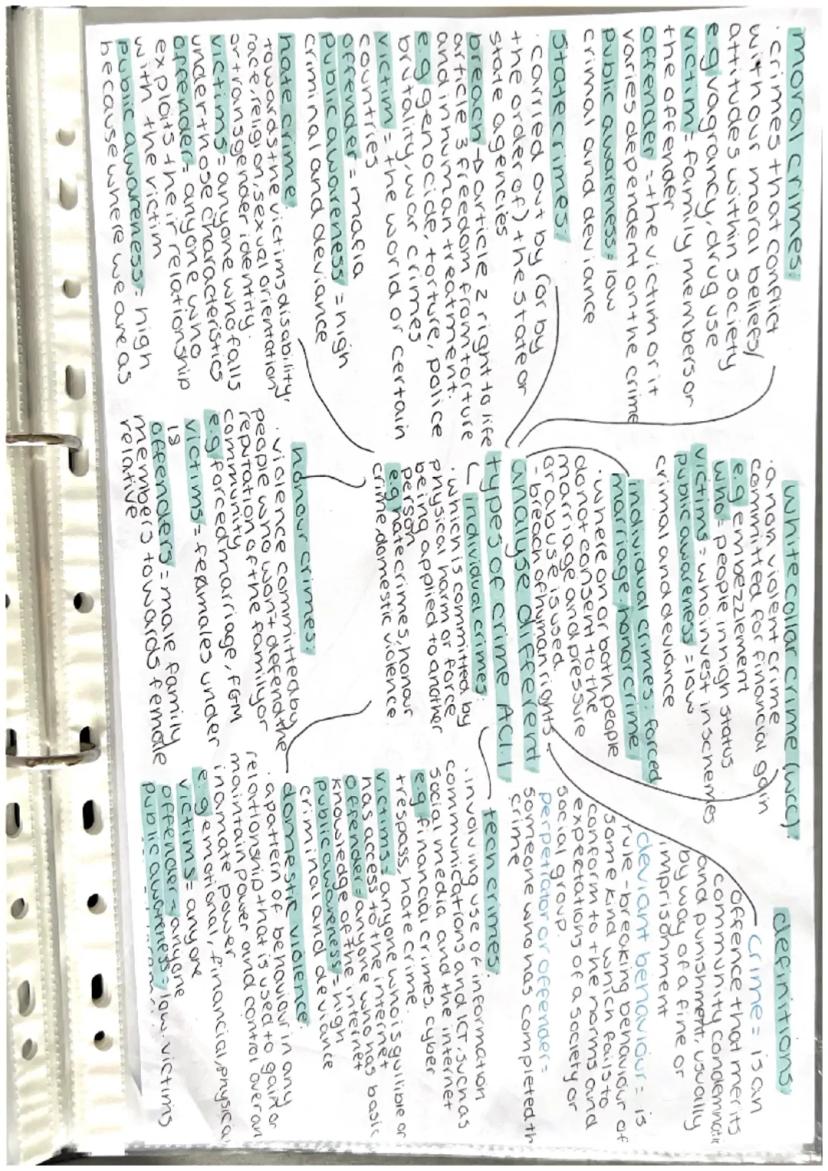 moral crimes:
· crimes that conflict
with our moral beliefs/
attitudes within society
e.g vagrancy, drug use
victim = family members or
the offender
offender = the victim or it
varies dependent on the crime
public awareness = low
crimal and deviance
State crimes:
· carried out by (or by
the order of) the state or
state agencies
breach → article 2 right to life
article 3 freedom from torture
and inhuman treatment.
e.g genocide, torture, police
brutality, war crimes
victim = the world or certain
countries
offender = mafia
public awareness = high
criminal and deviance
hate crime:
towards the victims disability,
race, religion, sexual orientation
or transgender identity.
victims = anyone who falls
under those characteristics
offender = anyone who
exploits their relationship
with the victim
public awareness = high
because where we are as
white collar crime (wcc)
· a non violent crime
committed for financial gain
e.g embezzlement
who = people in high status
victims = who invest in schemes
public awareness = low
crimal and deviance
individual crimes: forced
marriage honor crime
· where on or both people
do not consent to the
marriage and pressure
or abuse is used.
- breach of human rights
analyse different
types of crime AC1.1
individual crimes:
· which is committed by
physical harm or force
being applied to another
person
e.g hate crimes, honour
crime, domestic violence
honour crimes:
· violence committed by
people who won't defend the
reputation of the family or
community
e.g forced marriage, FGM
victims = females under
18
offenders = male family
members towards female
relative
definitions
crime = is an
offence that merits
community condemnation
and punishment, usually
by way of a fine or
imprisonment
deviant behaviour = is
rule-breaking behaviour of
some kind which fails to
conform to the norms and
expectations of a society or
social group
perpetrator or offender =
someone who has completed th
crime
tech crimes:
· involving use of information
communications and ICT such as
social media and the internet
e.g financial crimes, cyber
trespass, hate crime.
victims = anyone who is gulible or
has access to the internet
offender = anyone who has basic
knowledge of the internet
public awareness = high
criminal and deviance
domestic violence:
· a pattern of behaviour in any
relationship that is used to gain or
maintain power and control over an
inamate power.
e.g emotional, financial, physical
victims = anyone
offender = anyone
public awareness = low. victims